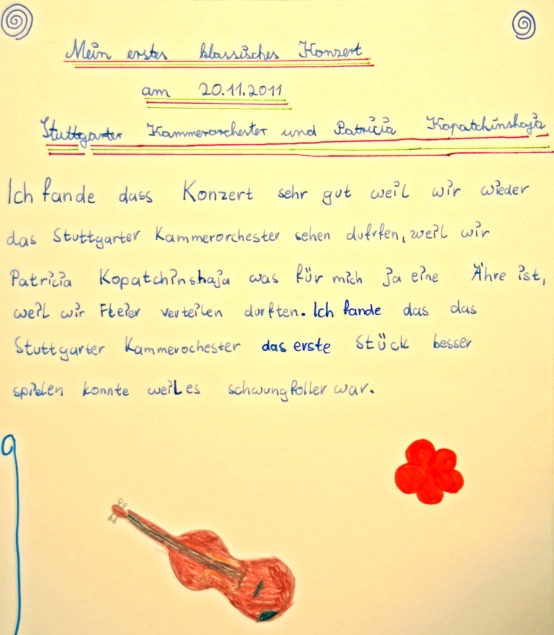 Mein erstes klassisches Konzert
am 20.11.2011
Stuttgarter Kammerorchester und Patricia Kopatchinskaja
Ich fande dass Konzert sehr gut weil wir wieder
das Stuttgarter Kammerorchester sehen dufrfen, weil wir
Patricia Kopatchinshaja was für mich ja eine Ähre ist,
weil wir Fleier verteilen durften. Ich fande das das
Stuttgarter Kammerochester das erste Stück besser
spielen konnte weil es schwungfoller war.